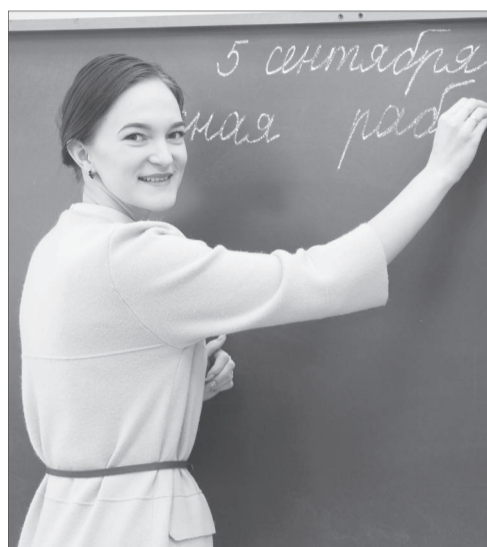 5 сентября
ная раб